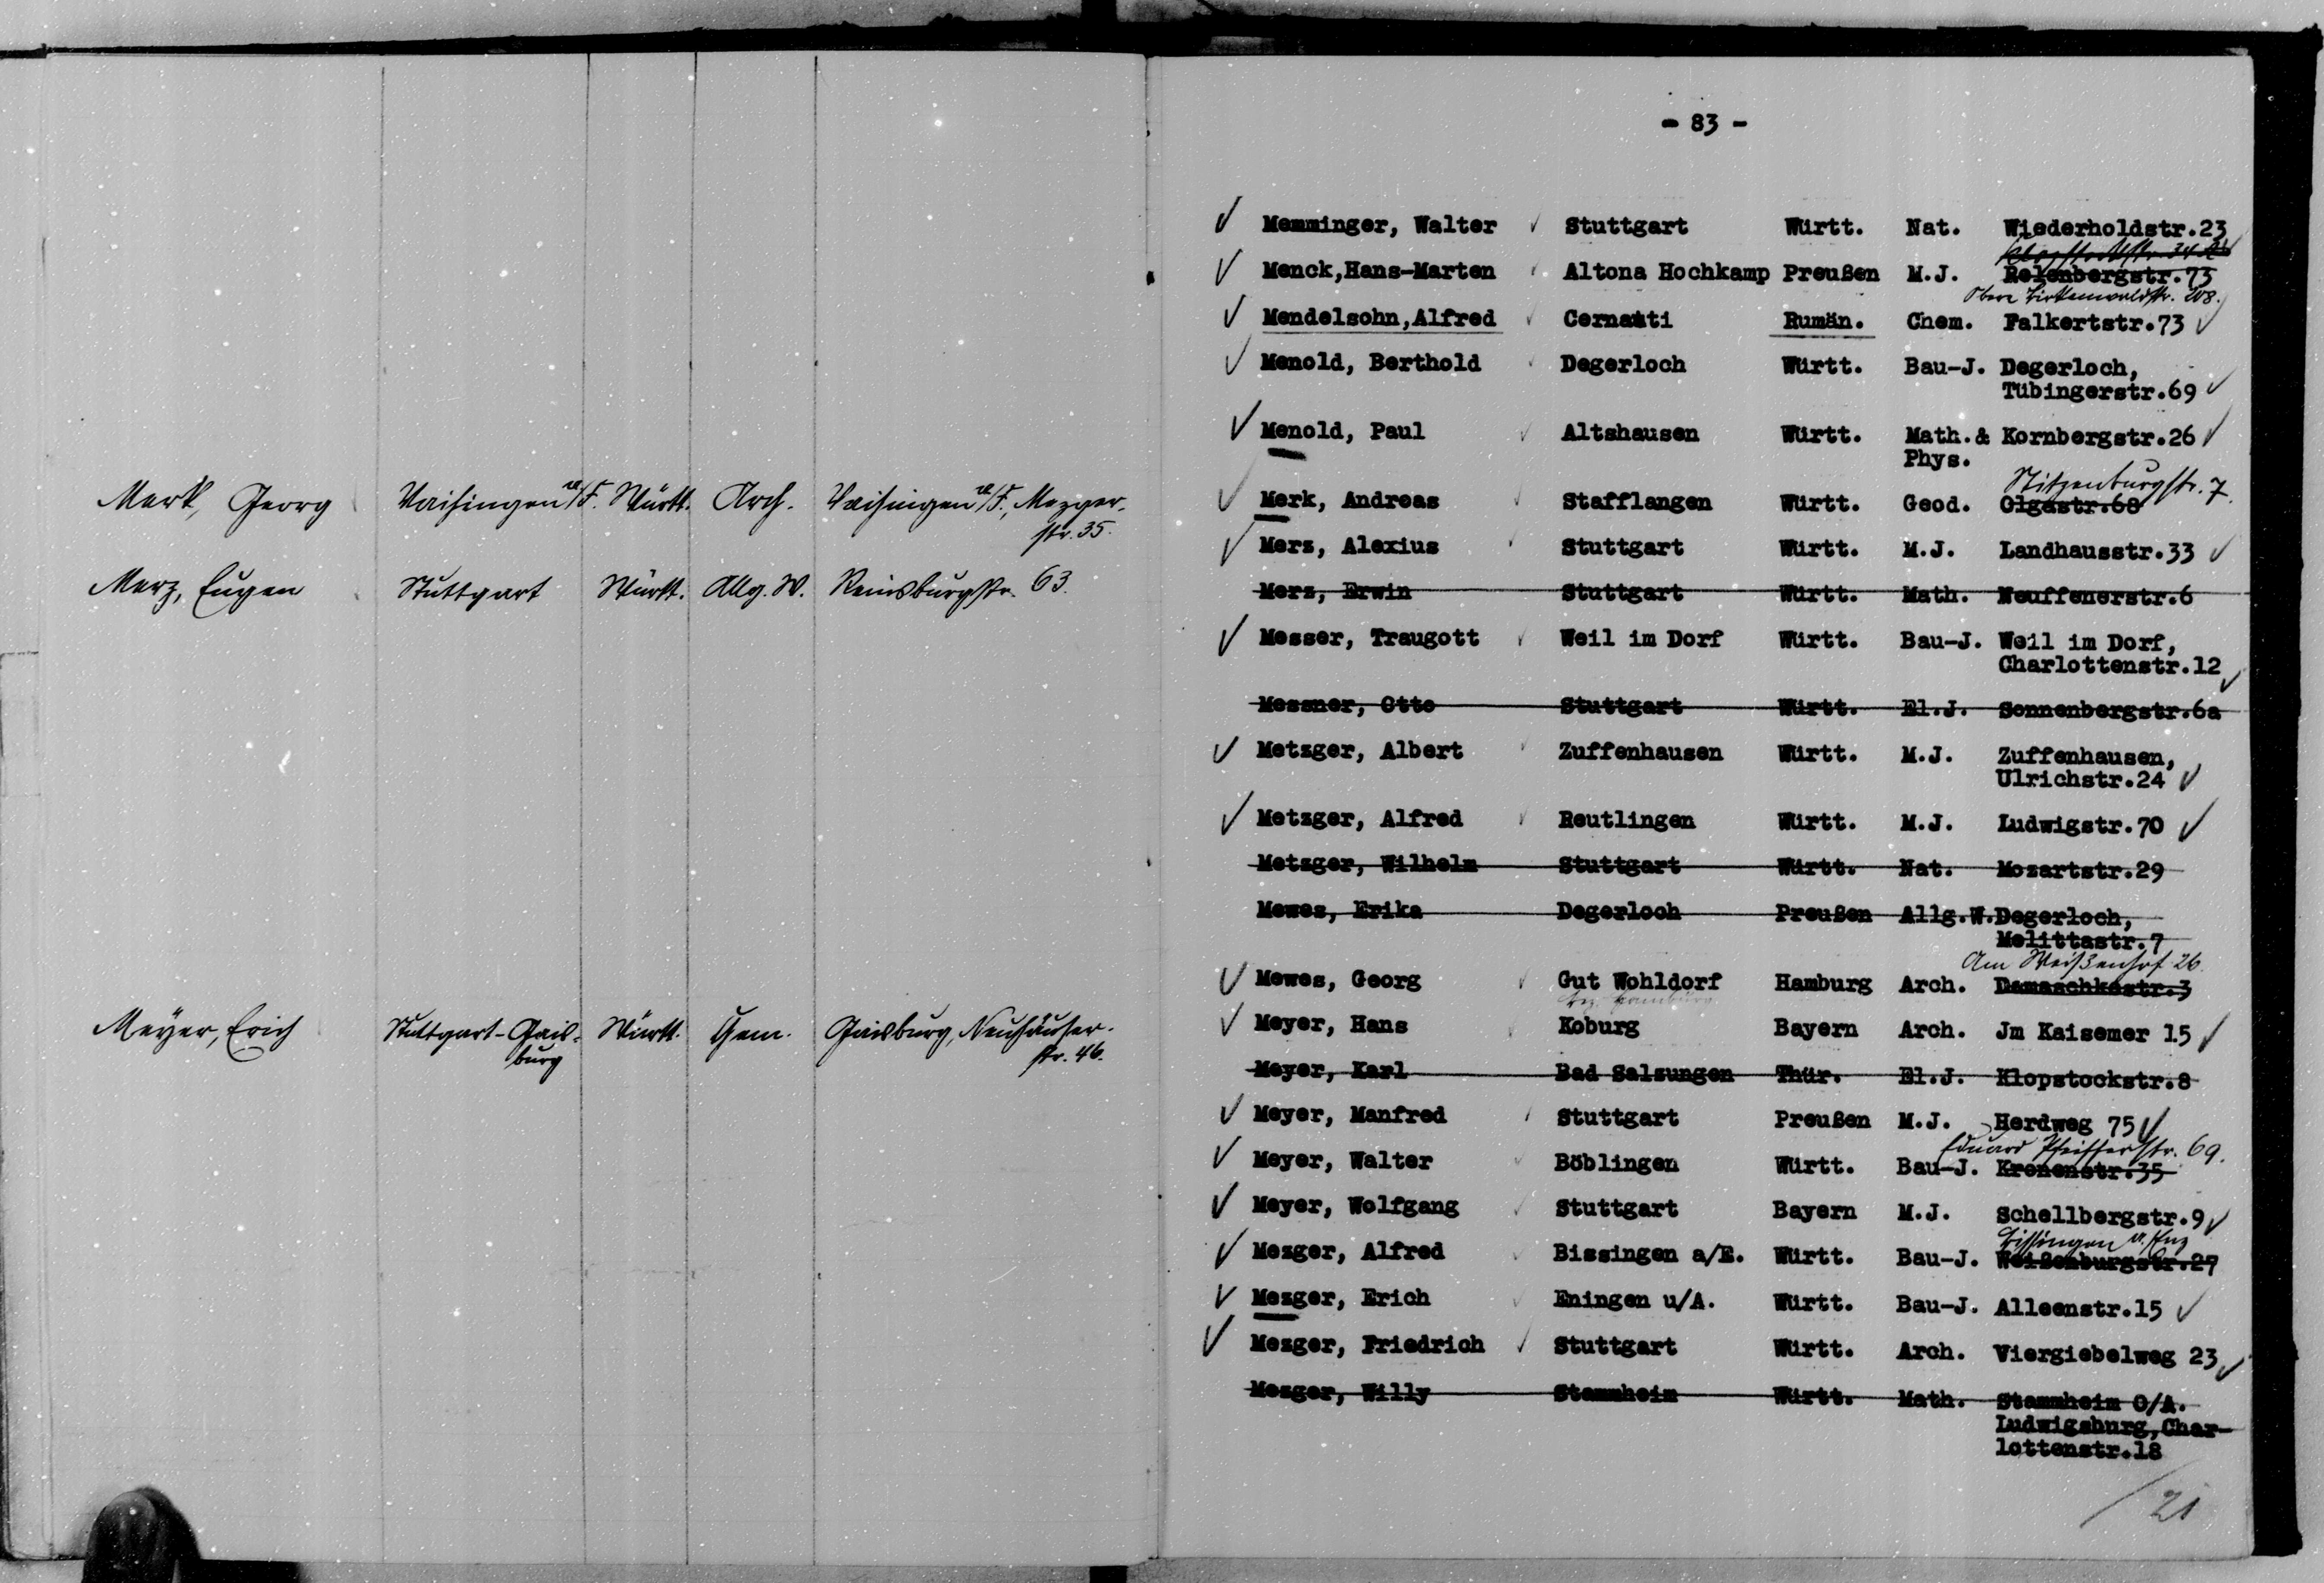 Merk, Georg Vaihingen a/F. Württ. Arch. Vaihingen a/F., Mezger-
str. 35.
Merz, Eugen Stuttgart Württ. Allg. W. Reinsburgstr. 63.
Meyer, Erich Stuttgart-Gais- Württ. Gaisburg, Neuhäuser-
burg str. 46.
- 83 -
Memminger, Walter Stuttgart Württ. Nat. Wiederholdstr.23
Menck,Hans-Marten Altona Hochkamp Preußen M.J. Relenbergstr.73
Obere Birkenwaldstr. 208.
Mendelsohn,Alfred Cernauti Rumän. Chem. Falkertstr.73
Menold, Berthold Degerloch Württ. Bau-J. Degerloch,
Tübingerstr.69
Menold, Paul Altshausen Württ. Math.& Kornbergstr.26
Phys.
Stitzenburgstr. 7.
Merk, Andreas Stafflangen Württ. Geod. Olgastr.68
Merz, Alexius Stuttgart Württ. M.J. Landhausstr.33
Merz, Erwin Stuttgart Württ. Math. Neuffenerstr.6
Messer, Traugott Weil im Dorf Württ. Bau-J. Weil im Dorf,
Charlottenstr.12
Messner, Otto Stuttgart Württ. El.J. Sonnenbergstr.6a
Metzger, Albert Zuffenhausen Württ. M.J. Zuffenhausen,
Ulrichstr.24
Metzger, Alfred Reutlingen Württ. M.J. Ludwigstr.70
Metzger, Wilhelm Stuttgart Württ. Nat. Mozartstr.29
Mewes, Erika Degerloch Preußen Allg.W.Degerloch,
Melittastr.7
Am Weißenhof 26.
Mewes, Georg Gut Wohldorf Hamburg Arch. Damaschkestr.3
Meyer, Hans Koburg Bayern Arch. Jm Kaisemer 15
Meyer, Karl Bad Salzungen Thür. El.J. Klopstockstr.8
Meyer, Manfred Stuttgart Preußen M.J. Herdweg 75
Eduard Pfeifferstr. 69.
Meyer, Walter Böblingen Württ. Bau-J. Kronenstr.35
Meyer, Wolfgang Stuttgart Bayern M.J. Schellbergstr.9
Bissingen a. Enz
Mezger, Alfred Bissingen a/E. Württ. Bau-J. Weißenburgstr.27
Mezger, Erich Eningen u/A. Württ. Bau-J. Alleenstr.15
Mezger, Friedrich Stuttgart Württ. Arch. Viergiebelweg 23
Mezger, Willy Stammheim Württ. Math. Stammheim O/A.
Ludwigsburg,Char-
lottenstr.18
21